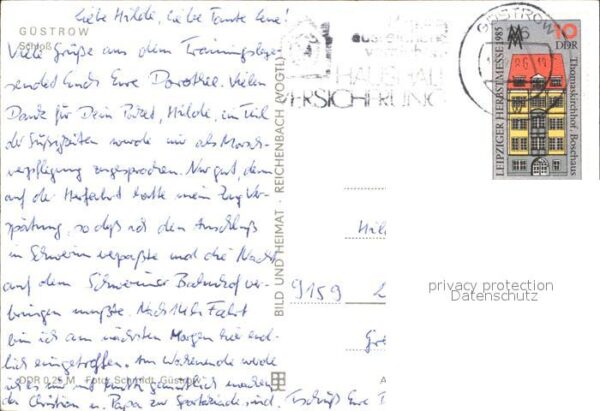 Liebe Hilde, liebe Tante Lene!
GÜSTROW
Schloß
Viele Grüße aus dem Trainingslager
sendet Euch Eure Dorothee. Vielen
Dank für Dein Paket, Hilde, ein Teil
der Süßigkeiten wurde mir als Marsch-
verpflegung zugesprochen. Nur gut, denn
auf der Herfahrt hatte mein Zug Ver-
spätung, so daß ich den Anschluß
in Schwerin verpaßte und die Nacht
auf dem Schweriner Bahnhof ver-
bringen mußte. Nach Fahrt
bin ich am nächsten Morgen hier end-
lich eingetroffen. Am Wochenende werde
ich es mir mit gemütlich machen,
da Christian u. Papa zur Spartakiade sind. Tschüß Eure
DDR 0,25 M Foto: Schmidt, Güstrow
BILD UND HEIMAT · REICHENBACH (VOGTL)
HAUSHALT
VERSICHERUNG
GÜSTROW
10
DDR
LEIPZIGER HERBSTMESSE 1985
Thomaskirchhof, Bosehaus
Hild
9159
privacy protection
Datenschutz